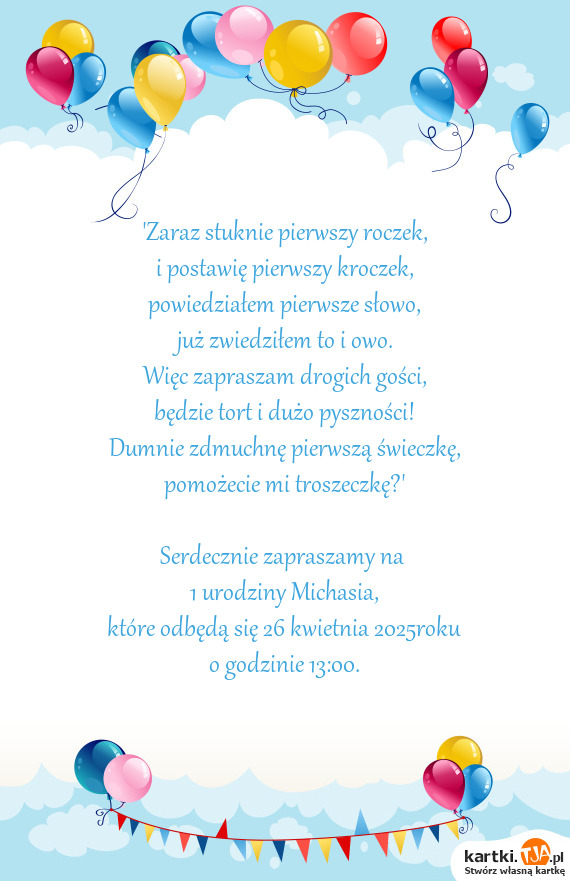 'Zaraz stuknie pierwszy roczek,
i postawię pierwszy kroczek,
powiedziałem pierwsze słowo,
już zwiedziłem to i owo.
Więc zapraszam drogich gości,
będzie tort i dużo pyszności!
Dumnie zdmuchnę pierwszą świeczkę,
pomożecie mi troszeczkę?'
Serdecznie zapraszamy na
1 urodziny Michasia,
które odbędą się 26 kwietnia 2025roku
o godzinie 13:00.
kartki.TJA.pl
Stwórz własną kartkę